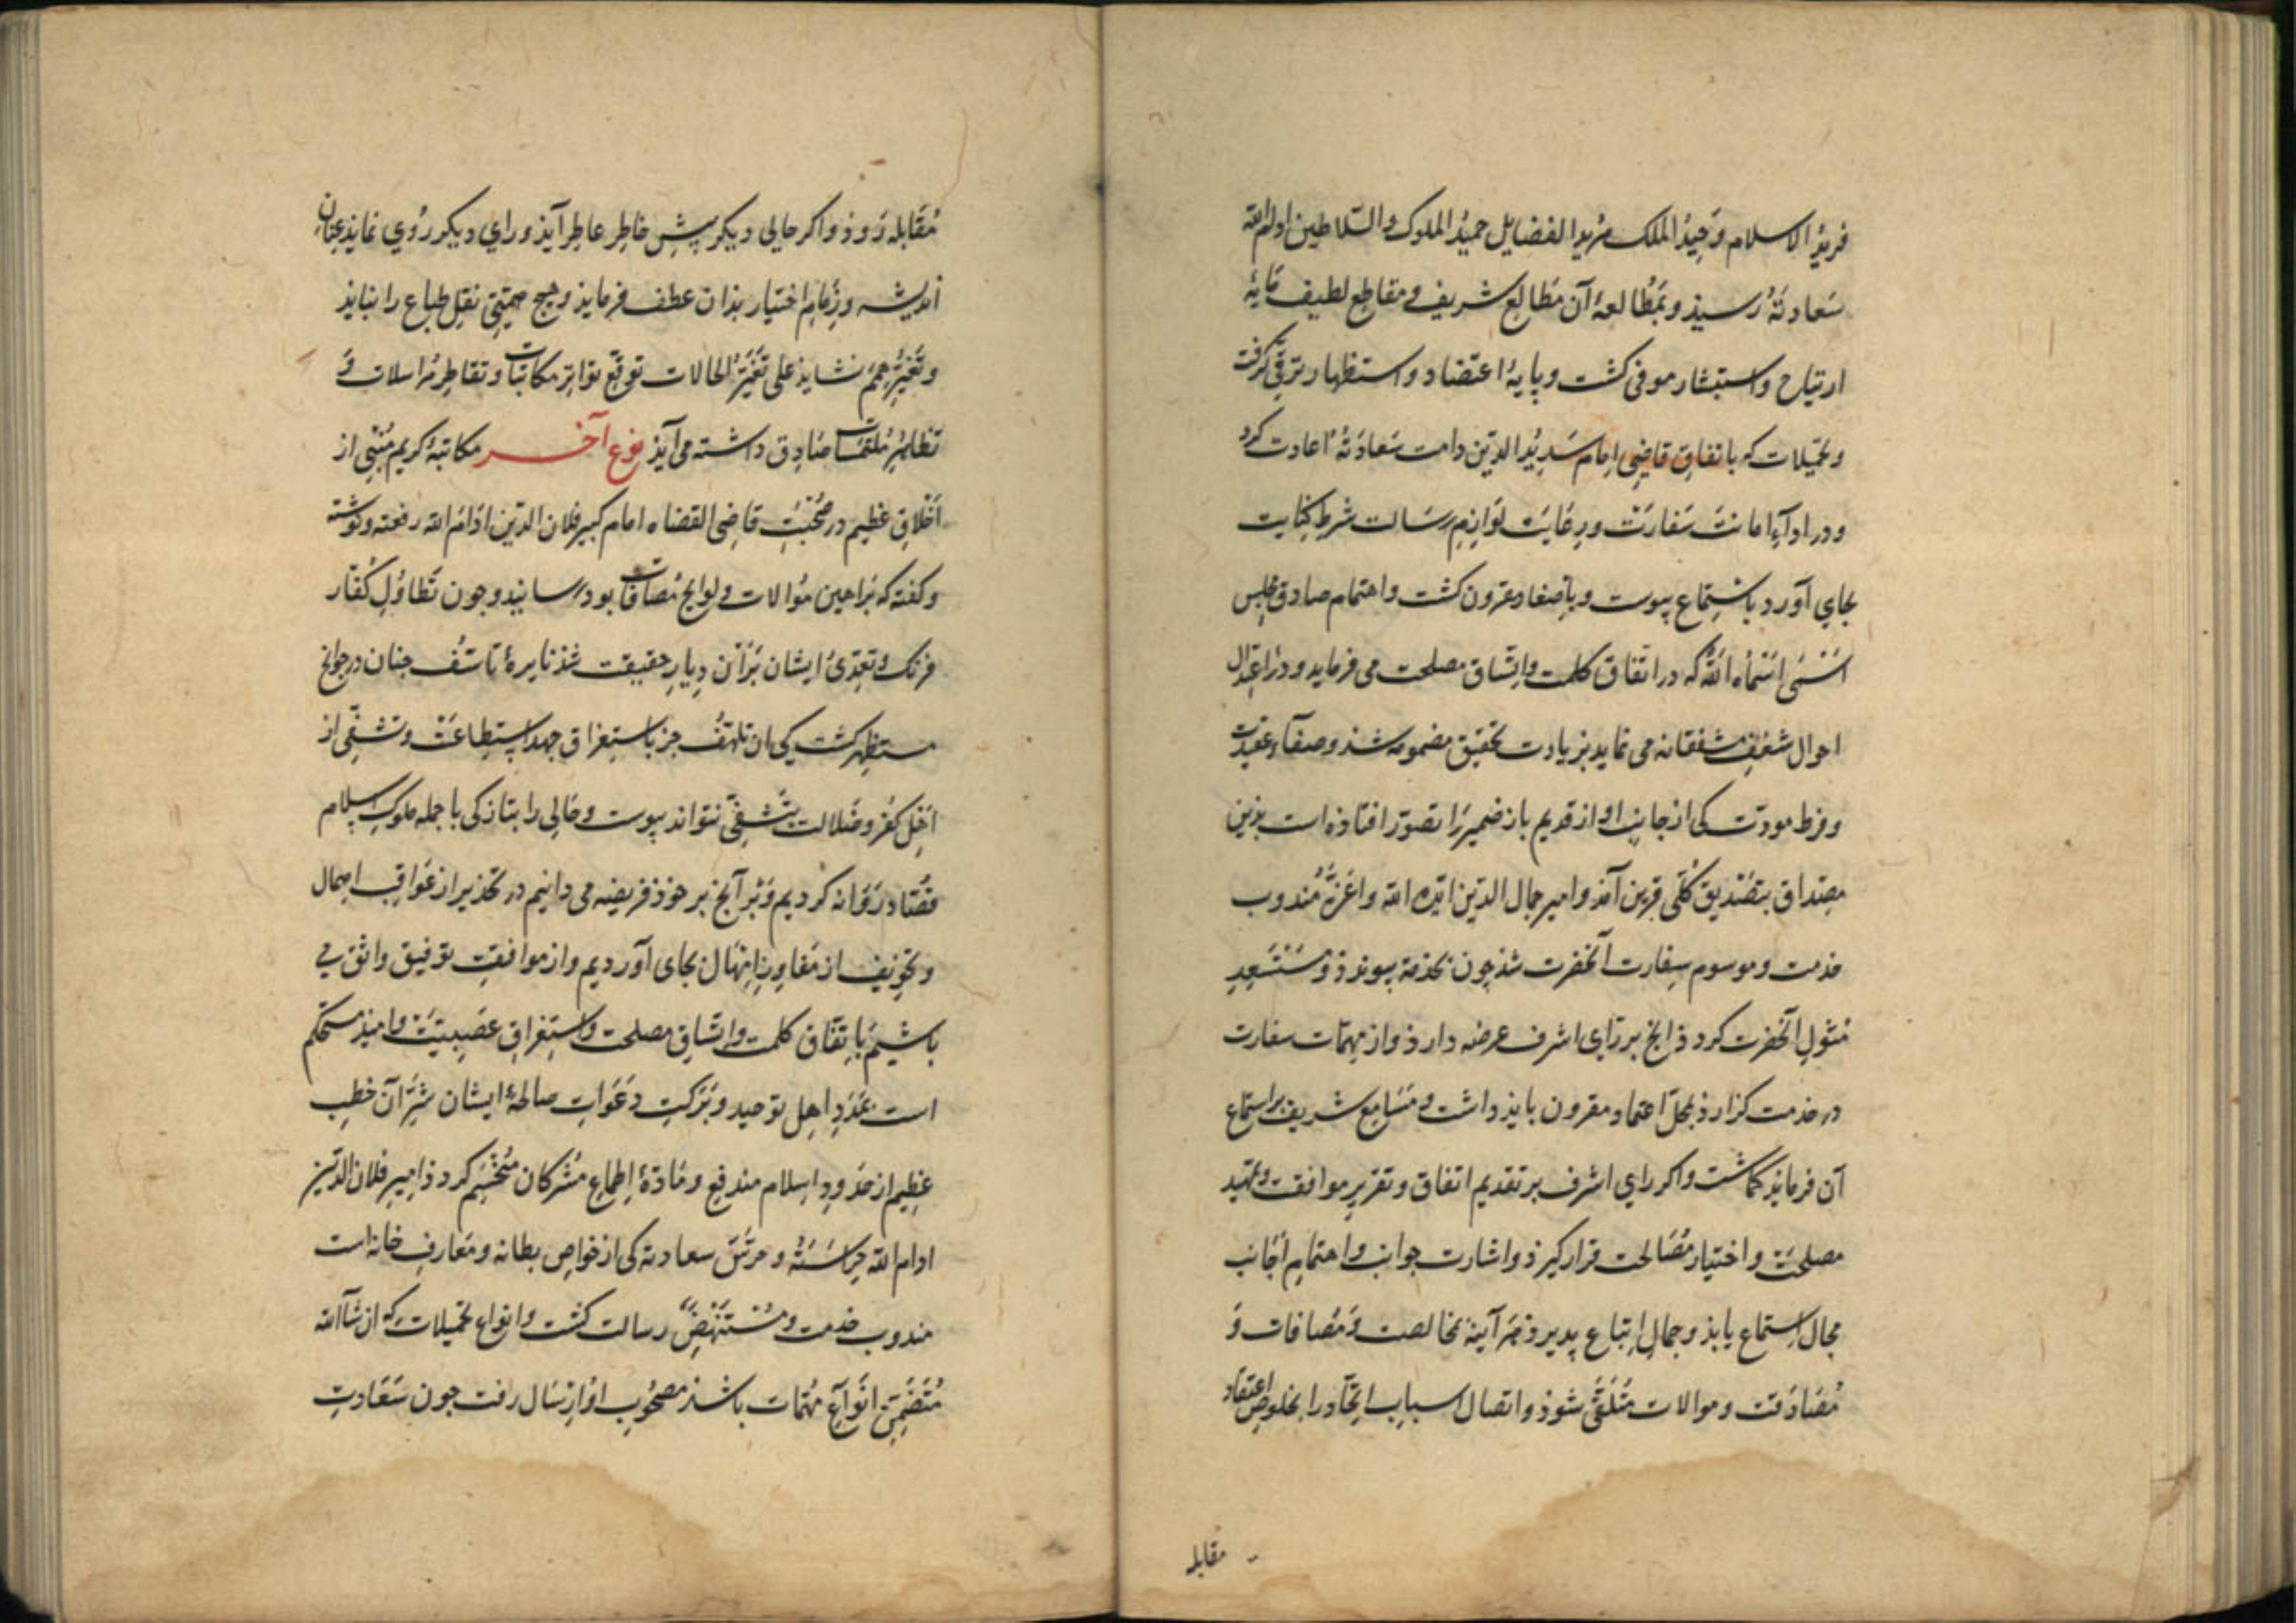 فرید الاسلام وحید الملک مربو الفضایل حمید الملوک والسلاطین ادام الله
سعادته رسیذ و بمطالعهٔ آن مطالع شریف و مقاطع لطیف مایهٔ
ارتیاح و استبشار موفی کشت و پایهٔ اعتضاد و استظهار ترقی کرفت
و تحمیلات که باتفاق قاضی امام سدید الدین دامت سعادته اعادت کرد
و در ادآء امانت سفارت و رعایت لوازم رسالت شرط کفایت
بجای آورد باستماع پیوست و باصغا مقرون کشت و اهتمام صادق مجلس
اسنی اسماه الله که در اتفاق کلمت و اتساق مصلحت می فرماید و در اعتدال
احوال شغف مشفقانه می نماید بزیادت تحقیق مضموم شذ و صفآء عقیدت
و فرط مودت کی از جانب او از قدیم باز ضمیر را تصور افتاذه است بذین
مصداق بتصدیق کلی قرین آمذ و امیر جمال الدین ایده الله و اعزه مندوب
خدمت و موسوم سفارت آنحضرت شذ چون بخدمة پیوندذ و مستسعد
مثول آنحضرت کردذ انج بر رای اشرف عرضه دارذ و از مهمات سفارت
در خدمت کزارذ بمحل اعتماد مقرون بایذ داشت و مسامع شریف بر استماع
آن فرمایذ کماشت و اکر رای اشرف بر تقدیم اتفاق و تقریر موافقت و تمهید
مصلحت و اختیار مصالحت قرار کیرذ و اشارت جوانب و اهتمام اجانب
مجال استماع یابذ و جمال اتباع پدیرذ هرآینه مخالصت و مصافات و
مصادقت و موالات متلقی شوذ و اتصال اسباب اتحاد را بخلوص اعتقاد
مقابله
مقابله روذ و اکر حالی دیکر پیش خاطر عاطر آیذ و رای دیکر روی نمایذ عنان
اندیشه و زمام اختیار بذان عطف فرمایذ و هیچ نقل طباع را نبایذ
و تغیر همم نشایذ علی تغیر الحالات توقع تواتر مکاتبات و تقاطر مراسلات و
تظاهر ملتمسات صادق داشته می آیذ نوع آخر مکاتبهٔ کریم منبی از
اخلاق عظیم در صحبت قاضی القضاه امام کبیر فلان الدین ادام الله رفعته و نوشته
و کفته که براهین موالات و لوایح مصافات بود رسانید و چون تطاول کفار
فرنک و تعدی ایشان بر آن دیار حقیقت شذ نایرهٔ تاسف چنان در جوانح
مستظهر کشت کی ان تلهف جز باستغراق جهد استطاعت و تشفی از
اهل کفر و ضلالت بتشفی نتواند پیوست و حالی را بتازکی با جمله ملوک اسلام
قصاد روانه کردیم و بر آنج بر خوذ فریضه می دانیم در تحذیر از عواقب اهمال
و تخویف از امهال بجای آوردیم و از موافقت توفیق واثق می
باشیم باتفاق کلمت و اتساق مصلحت و استغراق عصبیت و امیذ مستحکم
است بمدد اهل توحید و برکت دعوات صالحهٔ ایشان شر آن خطب
عظیم از حدود اسلام مندفع و مادهٔ اطماع مشرکان منحسم کردذ امیر فلان الدین
ادام الله حراسته و حرس سعادته کی از خواص بطانه و معارف خانه است
مندوب خدمت و مستنهض رسالت کشت و انواع تحمیلات که ان شآ الله
متضمن انواع مهمات باشذ مصحوب او ارسال رفت چون سعادت